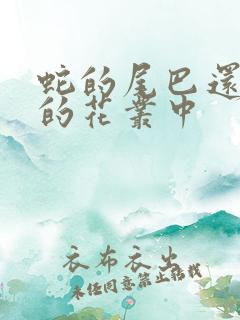 蛇的尾巴還
的花叢中
衣布衣出
未经同意禁止转载